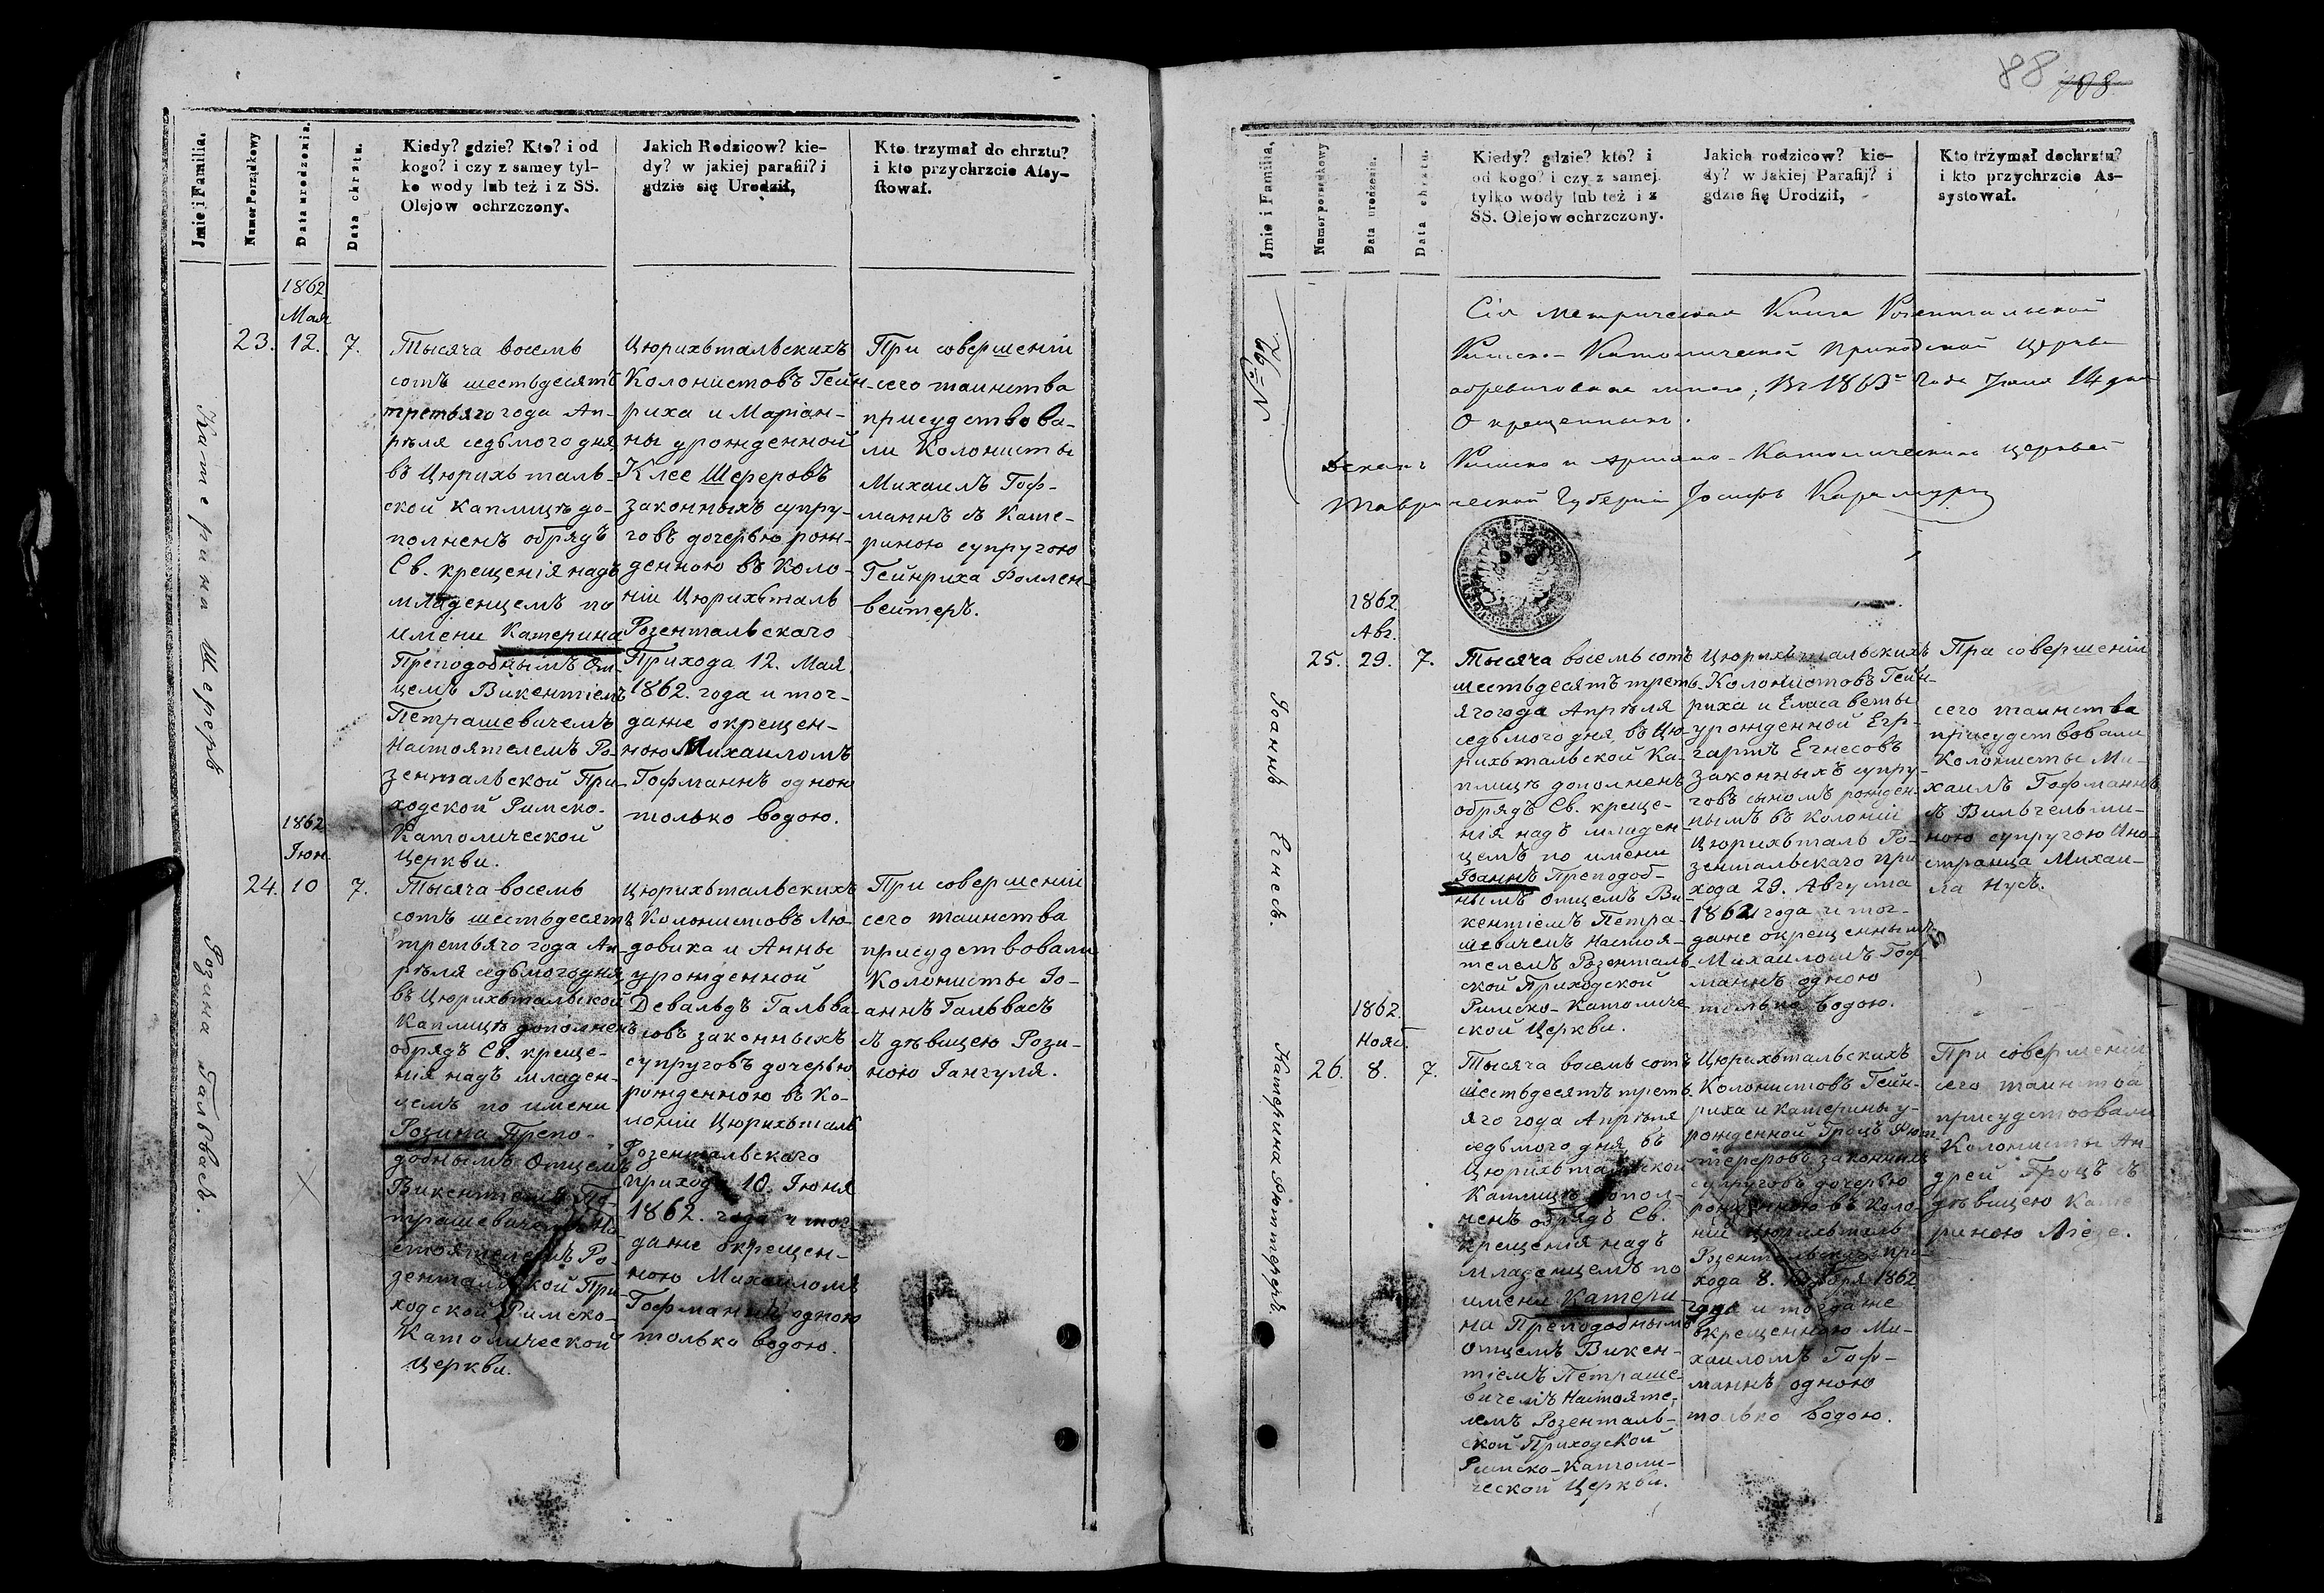 88 108
Jmie i Familia.
Numer Porządkowy
Data urodzenia.
Data chrztu.
Kiedy? gdzie? Kto? i od
kogo? i czy z samey tyl-
ko wody lub też i z SS.
Olejow ochrzczony.
Jakich Rodzicow? kie-
dy? w jakiej parafii? i
gdzie się Urodził,
Kto trzymał do chrztu?
i kto przychrzcie Assy-
stował.
Катерина Шереръ
1862
Мая
23. 12. 7.
Тысяча восемь
сотъ шестьдесятъ
третьяго года Ап-
рѣля седьмого дня
въ Цюрихьталь-
ской каплицѣ до-
полненъ обрядъ
Св. крещенія надъ
младенцемъ по
имени Катерина
Преподобнымъ От-
цемъ Викентіемъ
Петрашевичемъ
Настоятелемъ Ро-
зентальской При-
ходской Римско-
Католической
Церкви.
Цюрихьтальскихъ
Колонистовъ Гейн-
риха и Маріан-
ны урожденной
Клее Шереровъ
законныхъ супру-
говъ дочерью рож-
денною въ Коло-
ніи Цюрихьталь
Розентальскаго
Прихода 12. Мая
1862. года и тог-
даже окрещен-
ною Михаиломъ
Гофманнъ одною
только водою.
При совершеніи
сего таинства
присудствова-
ли Колонисты
Михаилъ Гоф-
маннъ съ Кате-
риною супругою
Гейнриха Фоллен-
вейтеръ.
Розина Гальвасъ.
1862
Іюн.
24. 10 7.
Тысяча восемь
сотъ шестьдесятъ
третьяго года Ап-
рѣля седьмого дня
въ Цюрихьтальской
Каплицѣ дополненъ
обрядъ Св. креще-
нія надъ младен-
цемъ по имени
Розина Препо-
добнымъ Отцемъ
Викентіемъ Пе-
трашевичемъ На-
стоятелемъ Ро-
зентальской При-
ходской Римско-
Католической
Церкви.
Цюрихьтальскихъ
Колонистовъ Лю-
довика и Анны
урожденной
Девальдъ Гальва-
совъ законныхъ
супруговъ дочерью
рожденною въ Ко-
лоніи Цюрихьталь
Розентальскаго
прихода 10. Іюня
1862. года и тог-
даже окрещен-
ною Михаиломъ
Гофманнъ одною
только водою.
При совершеніи
сего таинства
присудствовали
Колонисты Іо-
аннъ Гальвасъ
съ дѣвицею Рози-
ною Гангуля.
Jmie i Familia,
Numer porządkowy
Data urodzenia.
Data chrztu.
Kiedy? gdzie? kto? i
od kogo? i czy z samej
tylko wody lub też i z
SS. Olejow ochrzczony.
Jakich rodzicow? kie-
dy? w Jakiej Parafij? i
gdzie się Urodził,
Kto trzymał dochrztu?
i kto przychrzcie As-
systował.
Сія метрическая Книга Розентальской
Римско-Католической приходской церкви
обревизована мною, Въ 1863 годе Іюня 14 дня
О крещенныхъ.
Деканъ Римско и Армяно-Католическихъ церквей
Таврической Губерніи Іосифъ
Іоаннъ Егнесъ.
1862
Авг.
25. 29. 7.
Тысяча восемь сотъ
шестьдесятъ треть-
яго года Апрѣля
седьмого дня въ Цю-
рихьтальской Ка-
плицѣ дополненъ
обрядъ Св. креще-
нія надъ младен-
цемъ по имени
Іоаннъ Преподоб-
нымъ отцемъ Ви-
кентіемъ Петра-
шевичемъ Настоя-
телемъ Розенталь-
ской Приходской
Римско-Католиче-
ской Церкви.
Цюрихьтальскихъ
Колонистовъ Гейн-
риха и Елисаветы
урожденной Егр-
гартъ Егнесовъ
законныхъ супру-
говъ сыномъ рожден-
нымъ въ Колоніи
Цюрихьталь Ро-
зентальскаго при-
хода 29. Августа
1862 года и тог-
даже окрещеннымъ
Михаиломъ Гоф-
маннъ одною
только водою.
При совершеніи
сего таинства
присудствовали
Колонисты Ми-
хаилъ Гофманнъ
съ Вильгельми-
ною супругою Ино-
странца Михаи-
ла Нусъ.
Катерина Рюттереръ.
1862.
Нояб.
26. 8. 7.
Тысяча восемь сотъ
шестьдесятъ треть-
яго года Апрѣля
седьмого дня въ
Цюрихьтальской
Каплицѣ допол-
ненъ обрядъ Св.
крещенія надъ
младенцемъ по
имени Катери-
на Преподобнымъ
Отцемъ Викен-
тіемъ Петраше-
вичемъ Настояте-
лемъ Розенталь-
ской Приходской
Римско-Католи-
ческой Церкви.
Цюрихьтальскихъ
Колонистовъ Гейн-
риха и Катерины у-
рожденной Гроцъ Рют-
тереровъ законныхъ
супруговъ дочерью
рожденною въ Коло-
ніи Цюрихьталь
Розентальскаго при-
хода 8. Ноября 1862
года и тогдаже
окрещенною Ми-
хаиломъ Гоф-
маннъ одною
только водою.
При совершеніи
сего таинства
присудствовали
Колонисты Ан-
дрей Гроцъ съ
дѣвицею Кате-
риною